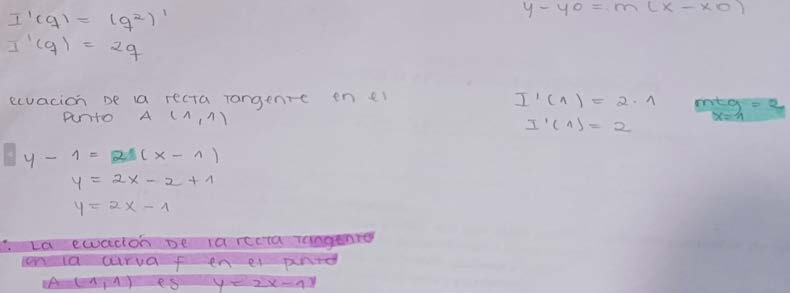 I'(q) = (q²)'
I'(q) = 2q
y - y0 = m(x - x0)
ecuación De la recta Tangente en el
punto A (1,1)
I'(1) = 2 · 1
I'(1) = 2
mtg = 2
x=1
y - 1 = 2(x - 1)
y = 2x - 2 + 1
y = 2x - 1
∴ La ecuación De la recta Tangente
en la curva f en el punto
A (1,1) es y = 2x - 1